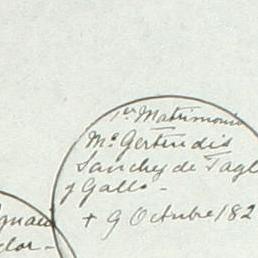 1er Matrimonio
Ma Gertrudis
Sanchez de Tagl
y Gallo -
+ 9 Octubre 182
gnaci
dor -